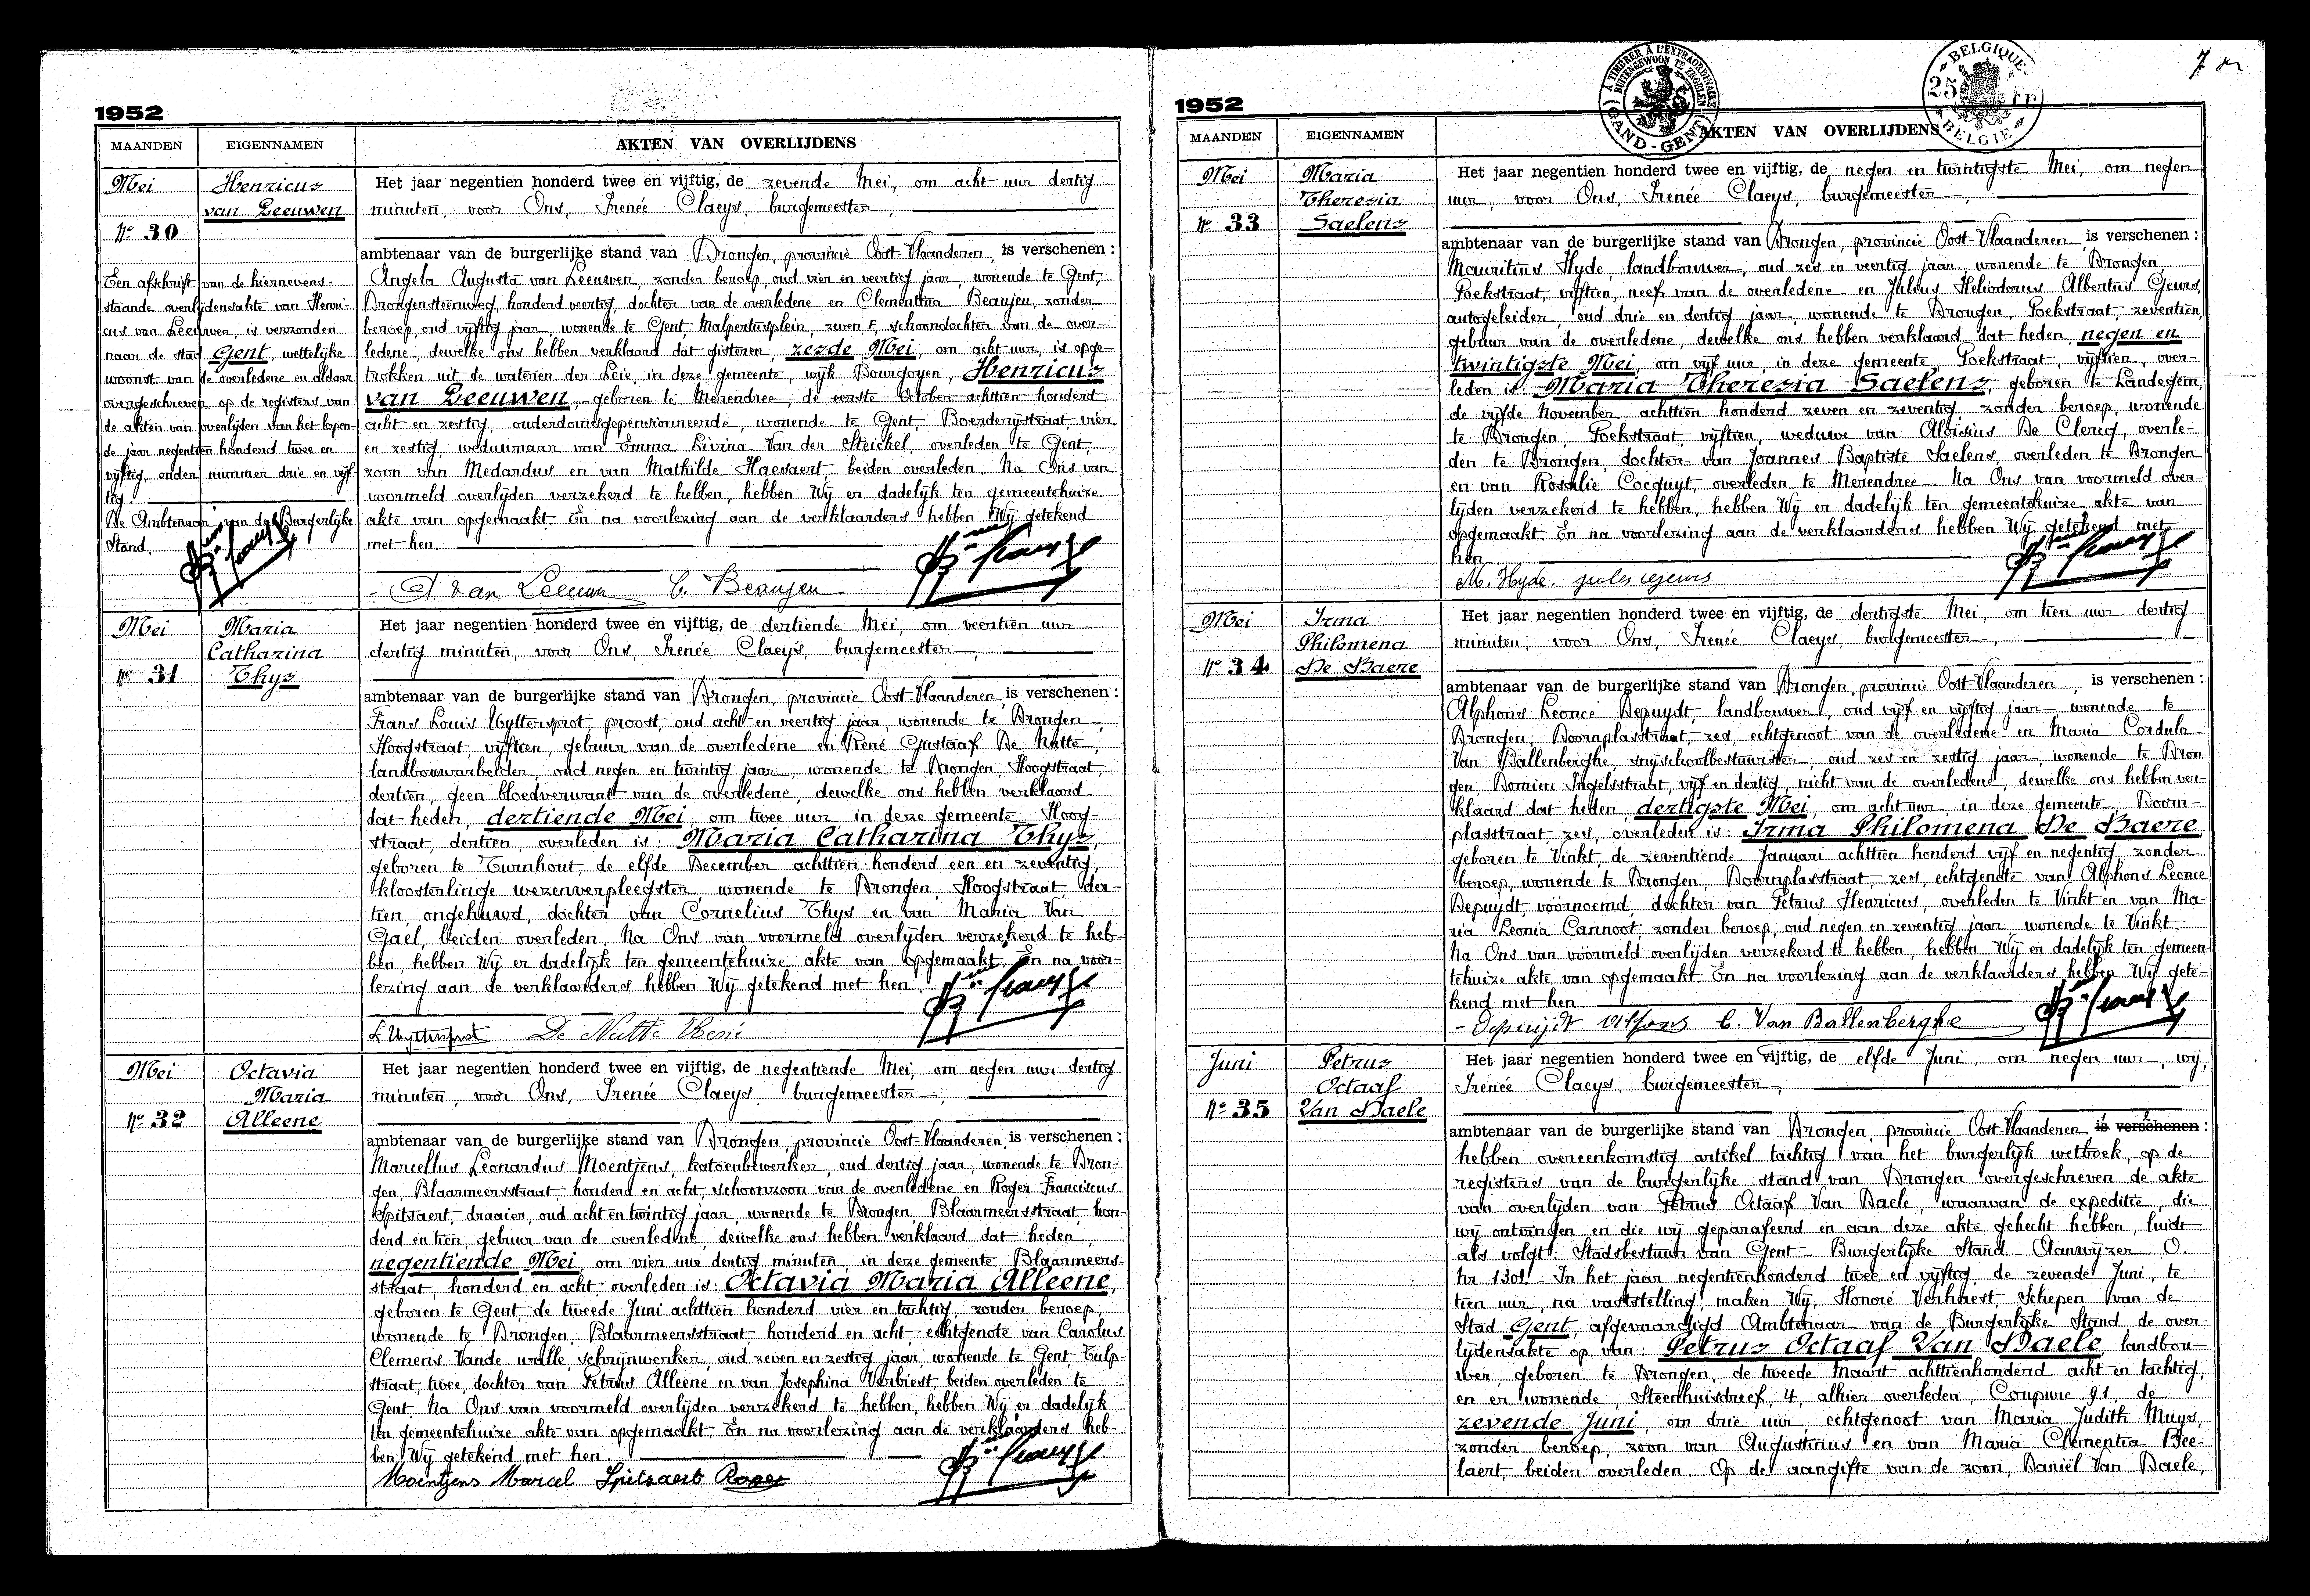 1952
MAANDEN EIGENNAMEN AKTEN VAN OVERLIJDENS
Mei
Nº 30
Henricus
van Leeuwen
Een afschrift van de hiernevens-
staande overlijdensakte van Henri-
cus van Leeuwen, is verzonden
naar de stad Gent, wettelijke
woonst van de overledene en aldaar
overgeschreven op de registers van
de akten van overlijden van het lopen-
de jaar negentien honderd twee en
vijftig, onder nummer drie en vijf-
tig.
De Ambtenaar van de Burgerlijke
Stand,
Het jaar negentien honderd twee en vijftig, de zevende Mei, om acht uur dertig
minuten, voor Ons, Irenée Claeys, burgemeester,
ambtenaar van de burgerlijke stand van Drongen, provincie Oost-Vlaanderen, is verschenen :
Angela Augusta van Leeuwen, zonder beroep, oud vier en veertig jaar, wonende te Gent,
Drongensteenweg, honderd veertig, dochter van de overledene en Clementina Beaujeu, zonder
beroep, oud vijftig jaar, wonende te Gent, Malpertusplein, zeven F, schoondochter van de over-
ledene, dewelke ons hebben verklaard dat gisteren, zesde Mei, om acht uur, is opge-
trokken uit de wateren der Leie, in deze gemeente, wijk Bourgoyen, Henricus
van Leeuwen, geboren te Merendree, de eerste October achttien honderd
acht en zestig, ouderdomsgepensionneerde, wonende te Gent, Boerderijstraat, vier
en zestig, weduwnaar van Emma Livina Van der Steichel, overleden te Gent,
zoon van Medardus en van Mathilde Haesaert, beiden overleden. Na Ons van
voormeld overlijden verzekerd te hebben, hebben Wij er dadelijk ten gemeentehuize
akte van opgemaakt. En na voorlezing aan de verklaarders hebben Wij getekend
met hen.
A. van Leeuw C. Beaujeu
Mei
Nº 31
Maria
Catharina
Thys
Het jaar negentien honderd twee en vijftig, de dertiende Mei, om veertien uur
dertig minuten, voor Ons, Irenée Claeys, burgemeester,
ambtenaar van de burgerlijke stand van Drongen, provincie Oost-Vlaanderen, is verschenen :
Frans Louis Uyttersprot, proost, oud acht en veertig jaar, wonende te Drongen,
Hoogstraat, vijftien, gebuur van de overledene en René Gustaaf De Nutte,
landbouwarbeider, oud negen en twintig jaar, wonende te Drongen, Hoogstraat,
dertien, geen bloedverwant van de overledene, dewelke ons hebben verklaard
dat heden, dertiende Mei, om twee uur in deze gemeente Hoog-
straat, dertien, overleden is: Maria Catharina Thys,
geboren te Turnhout, de elfde December achttien honderd een en zeventig,
kloosterlinge wezenverpleegster, wonende te Drongen, Hoogstraat, der-
tien, ongehuwd, dochter van Cornelius Thys en van Maria Van
Gael, beiden overleden. Na Ons van voormeld overlijden verzekerd te heb-
ben, hebben Wij er dadelijk ten gemeentehuize akte van opgemaakt. En na voor-
lezing aan de verklaarders hebben Wij getekend met hen.
L Uyttersprot De Nutte René
Mei
Nº 32
Octavia
Maria
Alleene
Het jaar negentien honderd twee en vijftig, de negentiende Mei, om negen uur dertig
minuten, voor Ons, Irenée Claeys, burgemeester,
ambtenaar van de burgerlijke stand van Drongen, provincie Oost-Vlaanderen, is verschenen :
Marcellus Leonardus Moentjens, katoenbewerker, oud dertig jaar, wonende te Dron-
gen, Blaarmeersstraat, honderd en acht, schoonzoon van de overledene en Roger Franciscus
Spitsaert, draaier, oud acht en twintig jaar, wonende te Drongen, Blaarmeersstraat, hon-
derd en tien, gebuur van de overledene, dewelke ons hebben verklaard dat heden,
negentiende Mei, om vier uur dertig minuten, in deze gemeente, Blaarmeers-
straat, honderd en acht, overleden is: Octavia Maria Alleene,
geboren te Gent, de tweede Juni achttien honderd vier en tachtig, zonder beroep,
wonende te Drongen, Blaarmeersstraat honderd en acht, echtgenote van Carolus
Clemens Vande walle, schrijnwerker, oud zeven en zestig jaar, wonende te Gent, Tulp-
straat, twee, dochter van Petrus Alleene en van Josephina Verbiest, beiden overleden te
Gent. Na Ons van voormeld overlijden verzekerd te hebben, hebben Wij er dadelijk
ten gemeentehuize akte van opgemaakt. En na voorlezing aan de verklaarders heb-
ben Wij getekend met hen.
Moentjens Marcel Spitsaert Roger
1952
A TIMBRER À L'EXTRAORDINAIRE
BUITENGEWOON TE ZEGELEN
GAND - GENT
BELGIQUE
25 Fr.
BELGIE
7
MAANDEN EIGENNAMEN AKTEN VAN OVERLIJDENS
Mei
Nº 33
Maria
Theresia
Saelens
Het jaar negentien honderd twee en vijftig, de negen en twintigste Mei, om negen
uur, voor Ons, Irenée Claeys, burgemeester,
ambtenaar van de burgerlijke stand van Drongen, provincie Oost-Vlaanderen, is verschenen :
Mauritius Hyde, landbouwer, oud zes en veertig jaar, wonende te Drongen,
Poekstraat, vijftien, neef van de overledene en Julius Heliodorus Albertus Geurs,
autogeleider, oud drie en dertig jaar, wonende te Drongen, Poekstraat, zeventien,
gebuur van de overledene, dewelke ons hebben verklaard dat heden, negen en
twintigste Mei, om vijf uur, in deze gemeente, Poekstraat, vijftien, over-
leden is: Maria Theresia Saelens, geboren te Landegem,
de vijfde November achttien honderd zeven en zeventig, zonder beroep, wonende
te Drongen, Poekstraat, vijftien, weduwe van Aloisius De Clercq, overle-
den te Drongen, dochter van Joannes Baptiste Saelens, overleden te Drongen
en van Rosalie Cocquyt, overleden te Merendree. Na Ons van voormeld over-
lijden verzekerd te hebben, hebben Wij er dadelijk ten gemeentehuize akte van
opgemaakt. En na voorlezing aan de verklaarders hebben Wij getekend met
hen.
M. Hyde. jules geurs
Mei
Nº 34
Irma
Philomena
De Baere
Het jaar negentien honderd twee en vijftig, de dertigste Mei, om tien uur dertig
minuten, voor Ons, Irenée Claeys, burgemeester,
ambtenaar van de burgerlijke stand van Drongen, provincie Oost-Vlaanderen, is verschenen :
Alphons Leonce Depuydt, landbouwer, oud vijf en vijftig jaar, wonende te
Drongen, Doornplasstraat, zes, echtgenoot van de overledene en Maria Cordula
Van Ballenberghe, snijschoolbestuurster, oud zes en zestig jaar, wonende te Dron-
gen, Domien Ingelsstraat, vijf en dertig, nicht van de overledene, dewelke ons hebben ver-
klaard dat heden, dertigste Mei, om acht uur, in deze gemeente, Doorn-
plasstraat, zes, overleden is: Irma Philomena De Baere,
geboren te Vinkt, de zeventiende Januari achttien honderd vijf en negentig, zonder
beroep, wonende te Drongen, Doornplasstraat, zes, echtgenote van Alphons Leonce
Depuydt, voornoemd, dochter van Petrus Henricus, overleden te Vinkt en van Ma-
ria Leonia Cannoot, zonder beroep, oud negen en zeventig jaar, wonende te Vinkt.
Na Ons van voormeld overlijden verzekerd te hebben, hebben Wij er dadelijk ten gemeen-
tehuize akte van opgemaakt. En na voorlezing aan de verklaarders hebben Wij gete-
kend met hen.
Depuijdt Alfons C. Van Ballenberghe
Juni
Nº 35
Petrus
Octaaf
Van Daele
Het jaar negentien honderd twee en vijftig, de elfde Juni, om negen uur, wij,
Irenée Claeys, burgemeester,
ambtenaar van de burgerlijke stand van Drongen, provincie Oost-Vlaanderen is verschenen :
hebben overeenkomstig artikel tachtig van het burgerlijk wetboek, op de
registers van de burgerlijke stand van Drongen overgeschreven de akte
van overlijden van Petrus Octaaf Van Daele, waarvan de expeditie, die
wij ontvingen en die wij geparafeerd en aan deze akte gehecht hebben, luidt
als volgt: Stadsbestuur van Gent - Burgerlijke Stand Aanwijzer O.
Nr 1301. In het jaar negentienhonderd twee en vijftig, de zevende Juni, te
tien uur, na vaststelling, maken Wij, Honoré Verhaest, Schepen van de
Stad Gent, afgevaardigd Ambtenaar van de Burgerlijke Stand, de over-
lijdensakte op van: Petrus Octaaf Van Daele, landbou-
wer, geboren te Drongen, de tweede Maart achttienhonderd acht en tachtig,
en er wonende, Steenhuisdreef, 4, alhier overleden, Coupure 91, de
zevende Juni, om drie uur, echtgenoot van Maria Judith Muys,
zonder beroep, zoon van Augustinus en van Maria Clementia Bee-
laert, beiden overleden. Op de aangifte van de zoon, Daniël Van Daele,